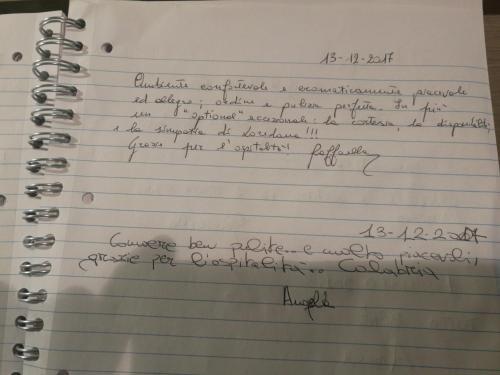 13-12-2017
Ambiente confortevole e cromaticamente piacevole
ed allegro; ordine e pulizia perfetta. In più
un "optional" eccezionale: la cortesia, la disponibilità,
e la simpatia di Loredana!!!
Grazie per l'ospitalità! Raffaella
13-12-2017
Camere ben pulite... e molto piacevoli,
grazie per l'ospitalità... Calabria
Angela